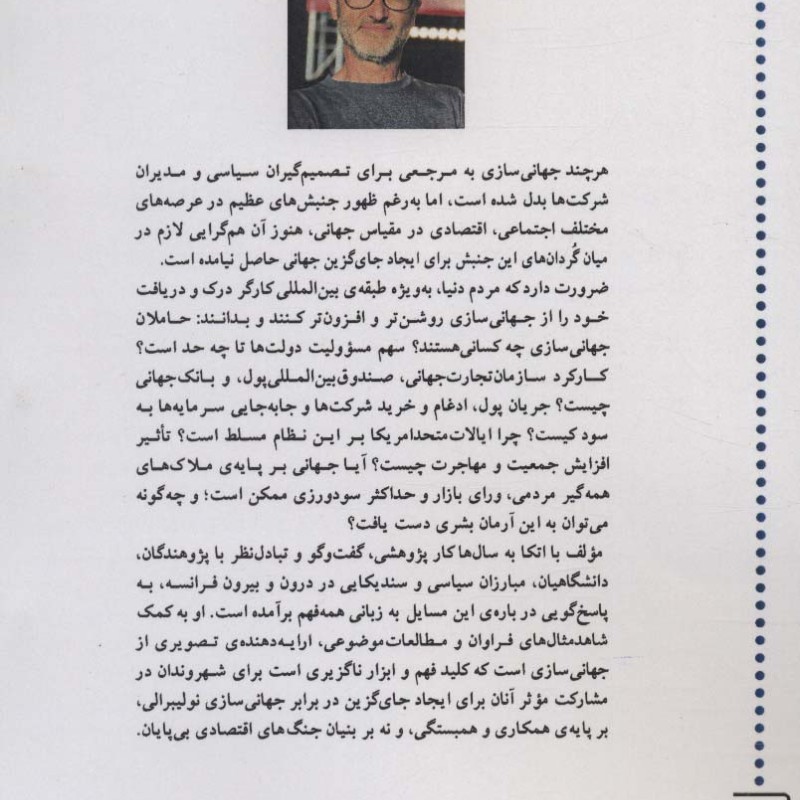 هرچند جهانی‌سازی به مرجعی برای تصمیم‌گیران سیاسی و مدیران
شرکت‌ها بدل شده است، اما به‌رغم ظهور جنبش‌های عظیم در عرصه‌های
مختلف اجتماعی، اقتصادی در مقیاس جهانی، هنوز آن هم‌گرایی لازم در
میان گُردان‌های این جنبش برای ایجاد جای‌گزین جهانی حاصل نیامده است.
ضرورت دارد که مردم دنیا، به‌ویژه طبقه‌ی بین‌المللی کارگر درک و دریافت
خود را از جهانی‌سازی روشن‌تر و افزون‌تر کنند و بدانند: حاملان
جهانی‌سازی چه کسانی‌هستند؟ سهم مسؤولیت دولت‌ها تا چه حد است؟
کارکرد سازمان‌تجارت‌جهانی، صندوق‌بین‌المللی‌پول، و بانک‌جهانی
چیست؟ جریان پول، ادغام و خرید شرکت‌ها و جابه‌جایی سرمایه‌ها به
سود کیست؟ چرا ایالات‌متحدامریکا بر این نظام مسلط است؟ تأثیر
افزایش جمعیت و مهاجرت چیست؟ آیا جهانی بر پایه‌ی ملاک‌های
همه‌گیر مردمی، ورای بازار و حداکثر سودورزی ممکن است؛ و چه‌گونه
می‌توان به این آرمان بشری دست یافت؟
مؤلف با اتکا به سال‌ها کار پژوهشی، گفت‌وگو و تبادل‌نظر با پژوهندگان،
دانشگاهیان، مبارزان سیاسی و سندیکایی در درون و بیرون فرانسه، به
پاسخ‌گویی در باره‌ی این مسایل به زبانی همه‌فهم برآمده است. او به کمک
شاهدمثال‌های فراوان و مطالعات‌موضوعی، ارایه‌دهنده‌ی تصویری از
جهانی‌سازی است که کلید فهم و ابزار ناگزیری است برای شهروندان در
مشارکت مؤثر آنان برای ایجاد جای‌گزین در برابر جهانی‌سازی نولیبرالی،
بر پایه‌ی همکاری و همبستگی، و نه بر بنیان جنگ‌های اقتصادی بی‌پایان.